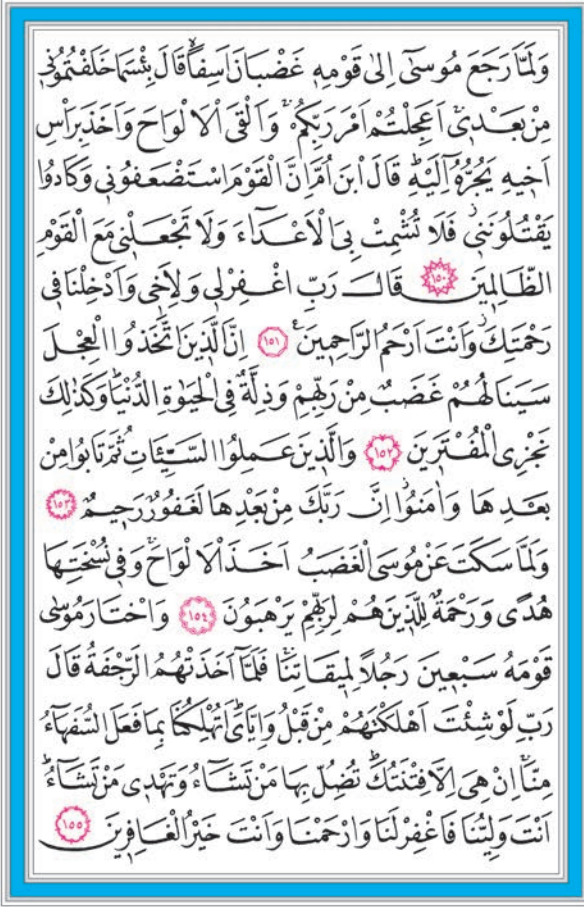 وَلَمَّا رَجَعَ مُوسٰٓى اِلٰى قَوْمِهٖ غَضْبَانَ اَسِفاًۙ قَالَ بِئْسَمَا خَلَفْتُمُونٖى
مِنْ بَعْدٖىۚ اَعَجِلْتُمْ اَمْرَ رَبِّكُمْۚ وَاَلْقَى الْاَلْوَاحَ وَاَخَذَ بِرَأْسِ
اَخٖيهِ يَجُرُّهُٓ اِلَيْهِؕ قَالَ ابْنَ اُمَّ اِنَّ الْقَوْمَ اسْتَضْعَفُونٖى وَكَادُوا
يَقْتُلُونَنٖىۘ فَلَا تُشْمِتْ بِىَ الْاَعْدَٓاءَ وَلَا تَجْعَلْنٖى مَعَ الْقَوْمِ
الظَّالِمٖينَ ﴿١٥٠﴾ قَالَ رَبِّ اغْفِرْ لٖى وَلِاَخٖى وَاَدْخِلْنَا فٖى
رَحْمَتِكَۘ وَاَنْتَ اَرْحَمُ الرَّاحِمٖينَ ﴿١٥١﴾ اِنَّ الَّذٖينَ اتَّخَذُوا الْعِجْلَ
سَيَنَالُهُمْ غَضَبٌ مِنْ رَبِّهِمْ وَذِلَّةٌ فِى الْحَيٰوةِ الدُّنْيَاؕ وَكَذٰلِكَ
نَجْزِى الْمُفْتَرٖينَ ﴿١٥٢﴾ وَالَّذٖينَ عَمِلُوا السَّيِّئَاتِ ثُمَّ تَابُوا مِنْ
بَعْدِهَا وَاٰمَنُٓواؗ اِنَّ رَبَّكَ مِنْ بَعْدِهَا لَغَفُورٌ رَحٖيمٌ ﴿١٥٣﴾
وَلَمَّا سَكَتَ عَنْ مُوسَى الْغَضَبُ اَخَذَ الْاَلْوَاحَۚ وَفٖى نُسْخَتِهَا
هُدًى وَرَحْمَةٌ لِلَّذٖينَ هُمْ لِرَبِّهِمْ يَرْهَبُونَ ﴿١٥٤﴾ وَاخْتَارَ مُوسٰى
قَوْمَهُ سَبْعٖينَ رَجُلاً لِمٖيقَاتِنَاۚ فَلَمَّٓا اَخَذَتْهُمُ الرَّجْفَةُ قَالَ
رَبِّ لَوْ شِئْتَ اَهْلَكْتَهُمْ مِنْ قَبْلُ وَاِيَّاىَؕ اَتُهْلِكُنَا بِمَا فَعَلَ السُّفَهَٓاءُ
مِنَّاۚ اِنْ هِىَ اِلَّا فِتْنَتُكَؕ تُضِلُّ بِهَا مَنْ تَشَٓاءُ وَتَهْدٖى مَنْ تَشَٓاءُؕ
اَنْتَ وَلِيُّنَا فَاغْفِرْ لَنَا وَارْحَمْنَا وَاَنْتَ خَيْرُ الْغَافِرٖينَ ﴿١٥٥﴾